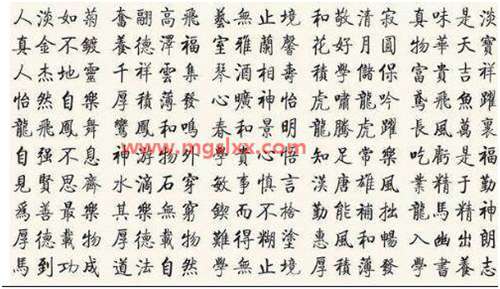 人淡如菊 奮翮高飛 藝無止境 和敬清寂 真味是淡
真金不鍍 養德澤福 室雅蘭馨 花好月圓 物華天寶
人杰地靈 千祥雲集 琴酒相壽 積學儲保 富貴吉祥
怡然自樂 厚積薄發 心曠神怡 虎嘯龍吟 鳶飛魚躍
龍飛鳳舞 鸞鳳和鳴 春和景明 龍騰虎躍 長風萬裏
www.mgslxx.com
自强不息 神游物外 賞心 知足常樂 吃虧是福
見賢思齊 水滴石穿 敏事慎言 漢唐雄風 業精于勤
爲善最樂 其樂無窮 鍥而不捨 勤能補拙 龍馬精神
厚德載物 厚德載物 難得糊塗 惠風和暢 入幽出朗
馬到功成 道法自然 學無止境 厚積薄發 學書養志